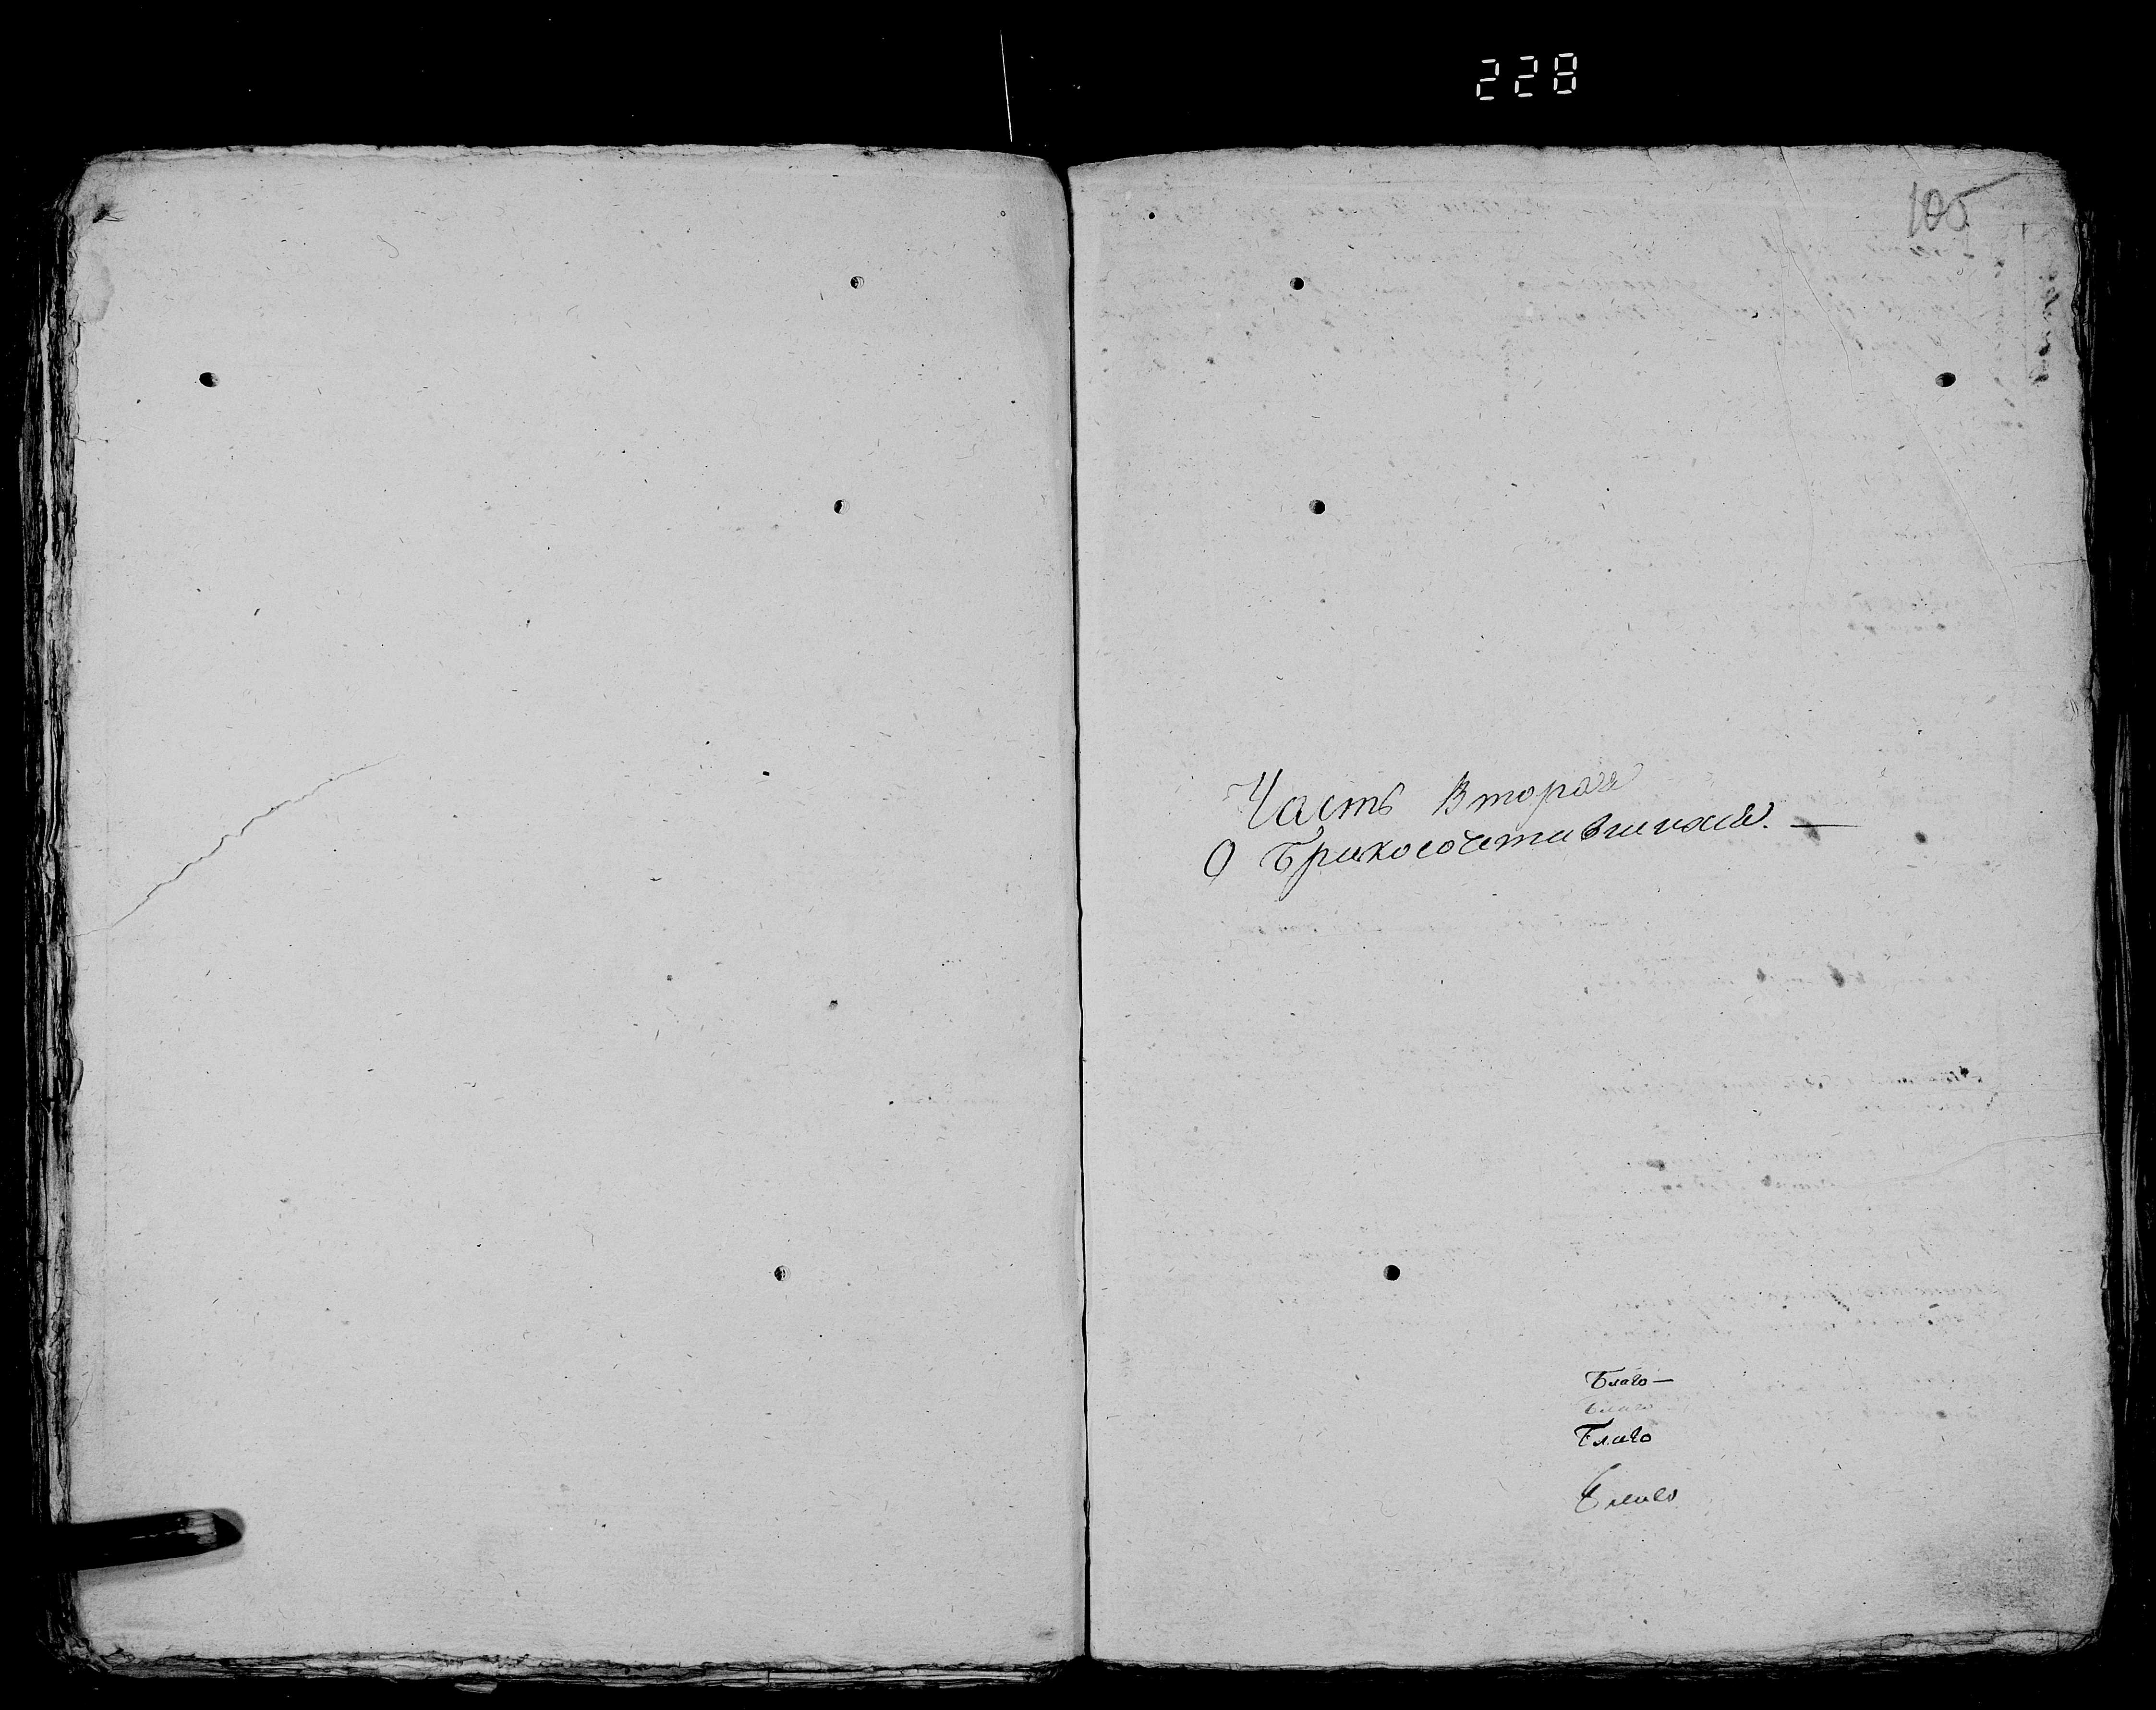 228
105
Часть Вторая
О Бракосочетавшихся. —
Благо —
Благо
Благо
Благо